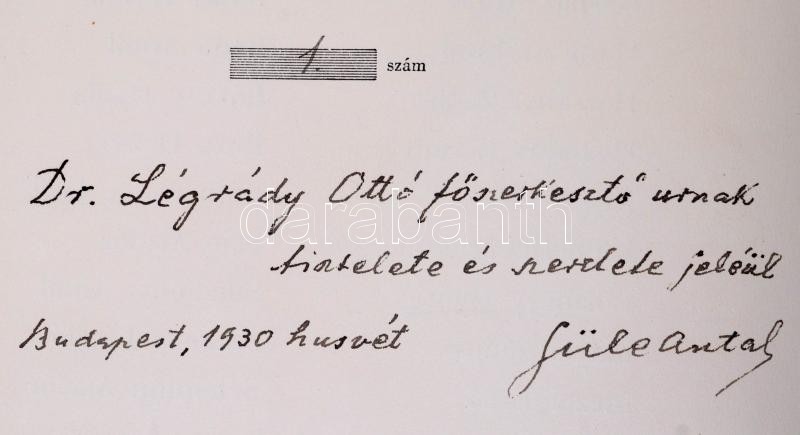 1. szám
Dr. Légrády Ottó főszerkesztő urnak
darabanth
tisztelete és szeretete jeléül
Budapest, 1930 husvét
Güle Antal